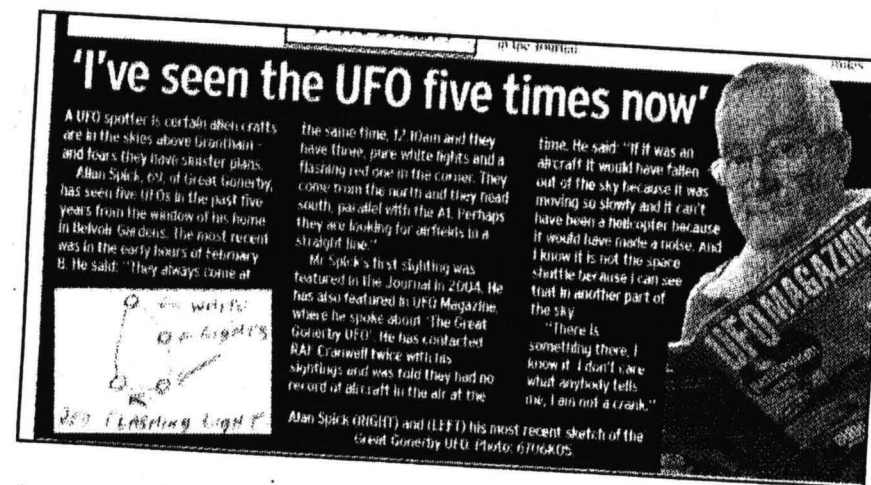 in the Journal
'I've seen the UFO five times now'
A UFO spotter is certain alien crafts
are in the skies above Grantham -
and fears they have sinister plans.
Allan Spick, 69, of Great Gonerby,
has seen five UFOs in the past five
years from the window of his home
in Belvoir Gardens. The most recent
was in the early hours of February
8. He said: "They always come at
the same time, 12.10am and they
have three, pure white lights and a
flashing red one in the corner. They
come from the north and they head
south, parallel with the A1. Perhaps
they are looking for airfields in a
straight line."
Mr Spick's first sighting was
featured in the Journal in 2004. He
has also featured in UFO Magazine,
where he spoke about 'The Great
Gonerby UFO'. He has contacted
RAF Cranwell twice with his
sightings and was told they had no
record of aircraft in the air at the
time. He said: "If it was an
aircraft it would have fallen
out of the sky because it was
moving so slowly and it can't
have been a helicopter because
it would have made a noise. And
I know it is not the space
shuttle because I can see
that in another part of
the sky.
"There is
something there, I
know it. I don't care
what anybody tells
me, I am not a crank."
WHITE
LIGHTS
RED FLASHING LIGHT
Alan Spick (RIGHT) and (LEFT) his most recent sketch of the
Great Gonerby UFO. Photo: 6706K05
UFO MAGAZINE